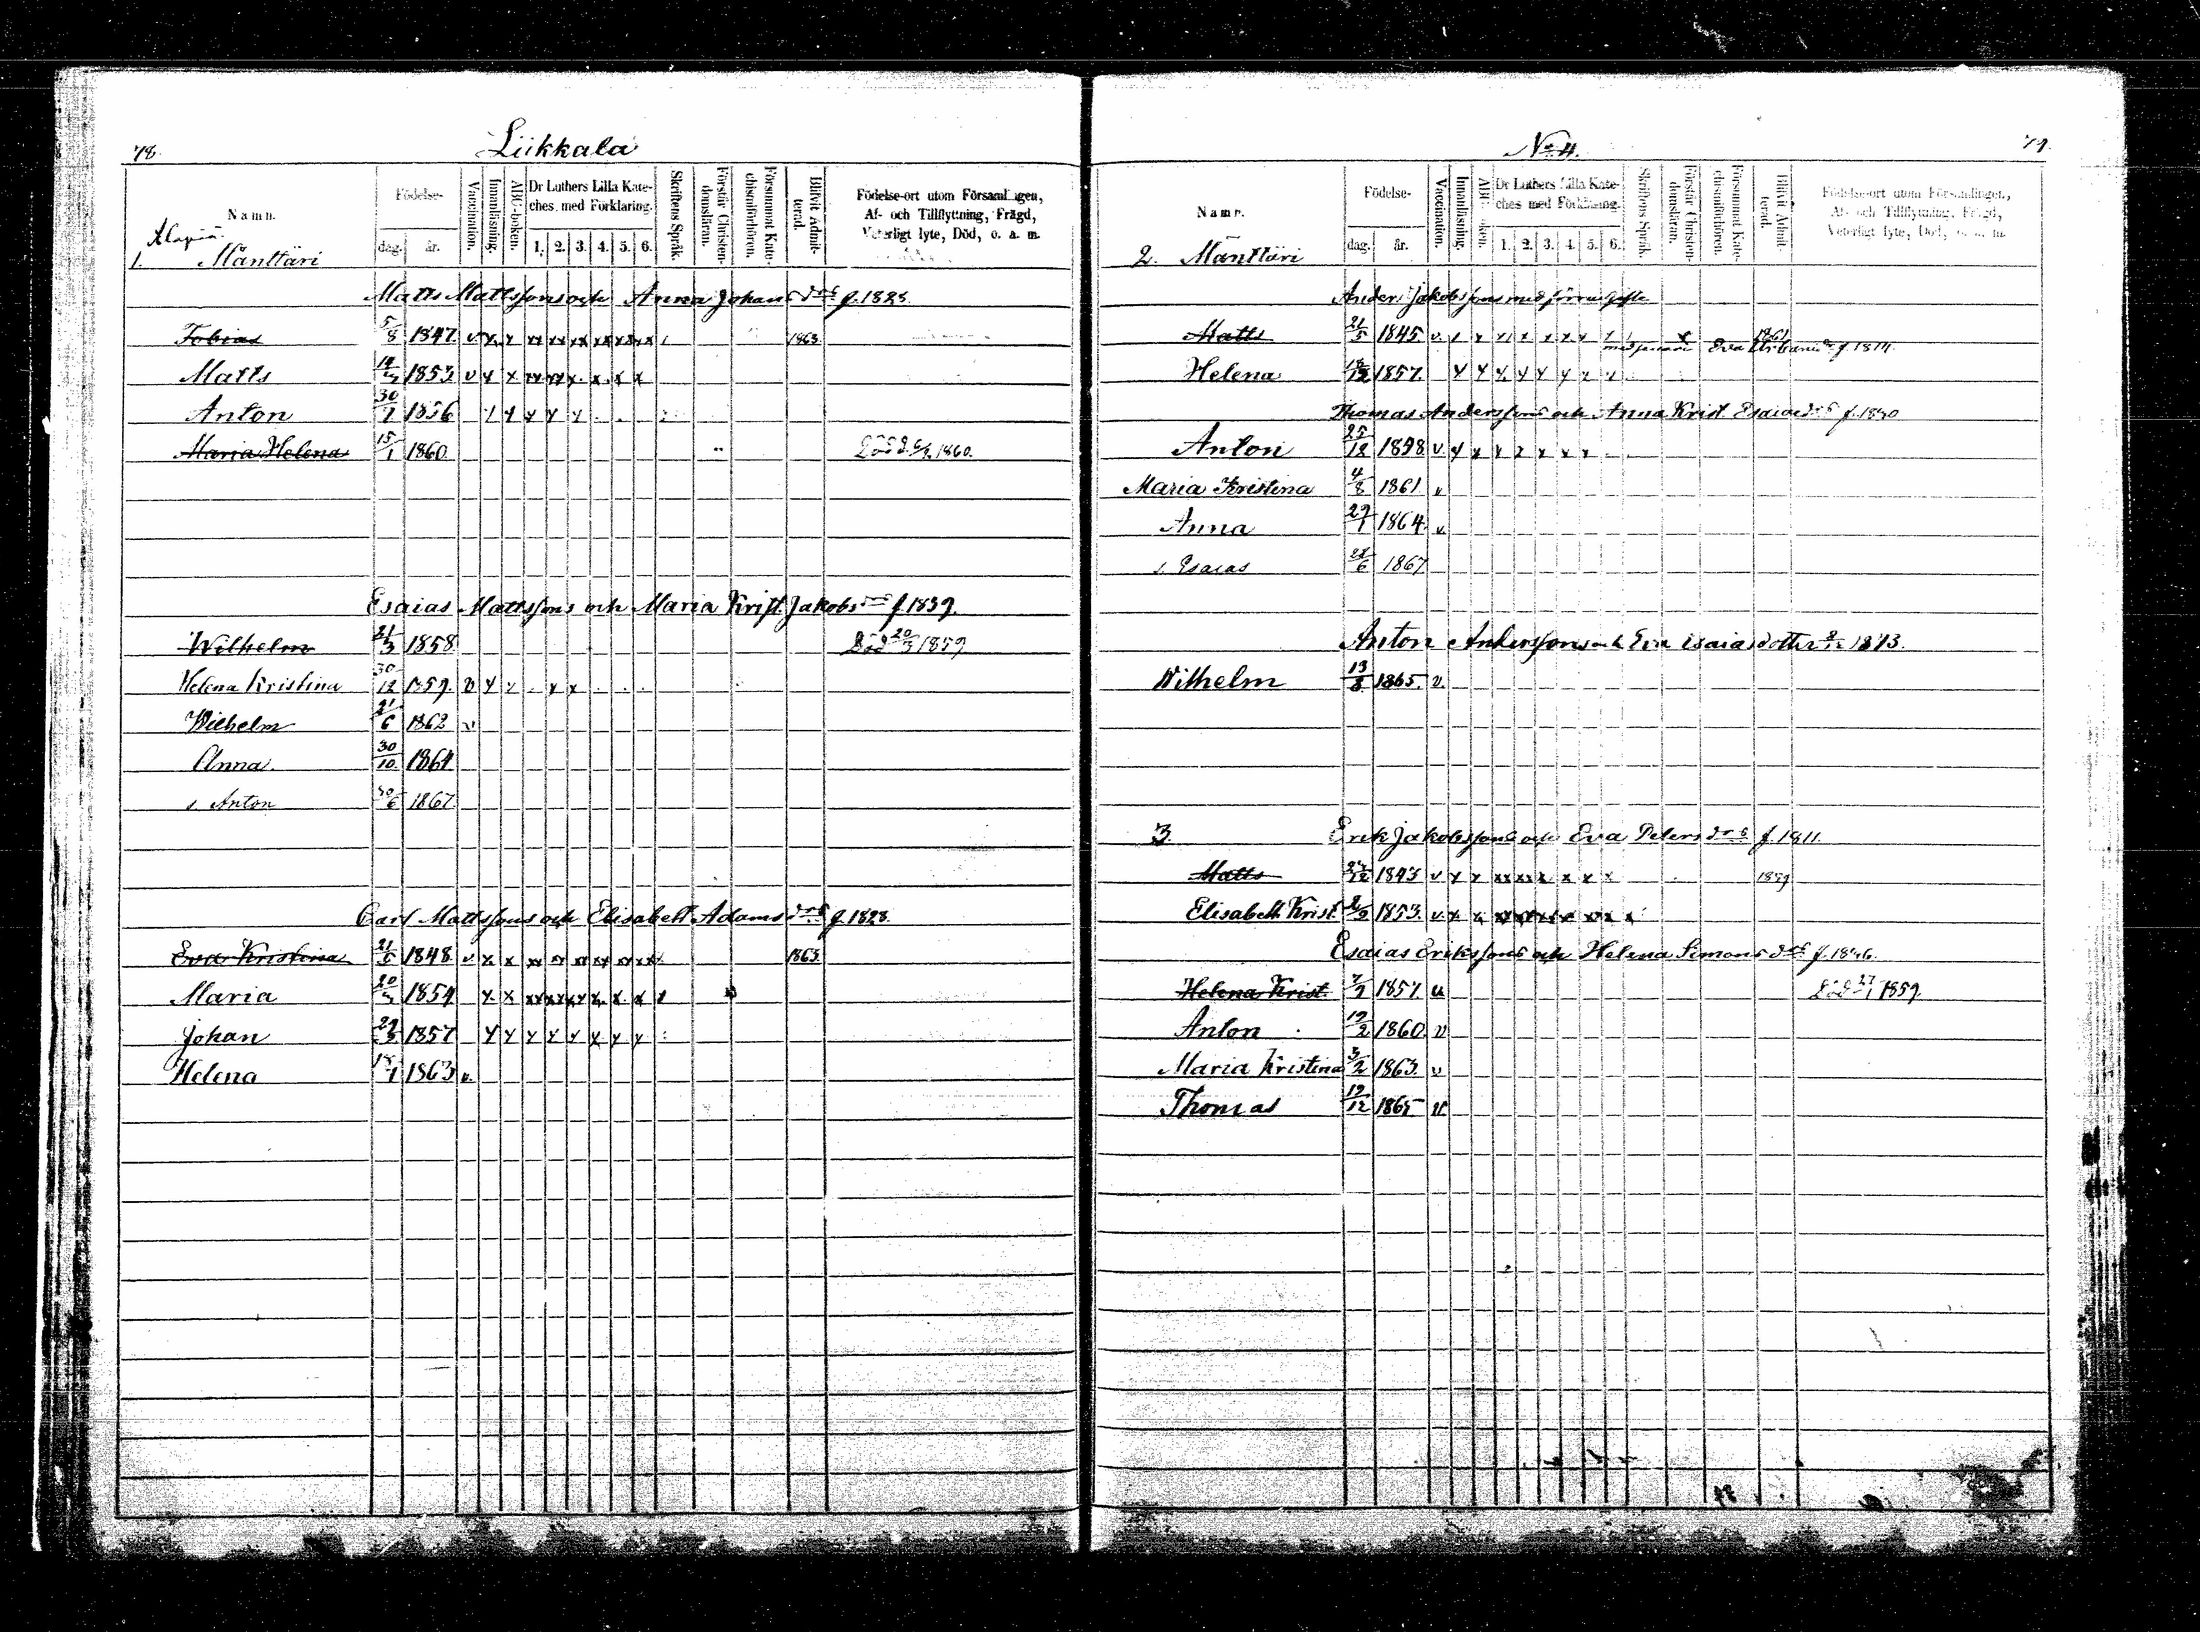 78.
Liikkala
Namn.
Födelse-
dag.
år.
Vaccination.
Innanläsning.
ABC-boken.
Dr Luthers Lilla Kate-
ches. med Förklaring.
1. 2. 3. 4. 5. 6.
Skriftens Språk.
Förstår Christen-
domsläran.
Försummat Kate-
chismförhören.
Blifvit Admit-
terad.
Födelse-ort utom Församlingen,
Af- och Tillflyttning, Frägd,
Veterligt lyte, Död, o. a. m.
1. Mänttäri
Matts Mattssons och Anna Johansdrs f. 1823.
Tobias 5/8 1847. v x x xx xx xx xx xx xx 1863
Matts 1853. v x x xx xx x x x x
Anton 30/1 1856 x x x x x
Maria Helena 15/1 1860. Död 1860.
Esaias Mattssons och Maria Krist. Jakobsdrs f. 1839.
Wilhelm 21/3 1858. Död 20/3 1859
Helena Kristina 30/12 1859. v x x x x
Wilhelm 21/6 1862 v
Anna 30/10 1864
s. Anton 30/6 1867.
Carl Mattssons och Elisabeth Adamsdrs f. 1823.
Eva Kristina 21/5 1848 v x x xx xx xx xx xx xx 1863
Maria 1854 x x xx xx xx x x x x
Johan 1857 x x x x x x x x
Helena 1863 v.
No. 4.
79.
Namn.
Födelse-
dag.
år.
Vaccination.
Innanläsning.
ABC-boken.
Dr Luthers Lilla Kate-
ches med Förklaring.
1. 2. 3. 4. 5. 6.
Skriftens Språk.
Förstår Christen-
domsläran.
Försummat Kate-
chismförhören.
Blifvit Admit-
terad.
Födelse-ort utom Församlingen,
Af- och Tillflyttning, Frägd,
Veterligt lyte, Död, o. a. m.
2. Mänttäri
Anders Jakobssons med förra gifte
Matts 21/5 1845. v. x x x x x x x x x 1861
med senare Eva Urbansdr f. 1814.
Helena 18/12 1857. x x x x x x x x
Thomas Anderssons och Anna Krist. Esaiaedrs f. 1840
Anton 25/12 1858. v x x x x x x x
Maria Kristina 4/8 1861. v
Anna 29/1 1864. v
s. Esaias 28/6 1867
Anton Anderssons och Eva Esaiasdotter 1843.
Wilhelm 13/8 1865. v.
3. Erik Jakobssons och Eva Petersdrs f. 1811.
Matts 1843 v x x xx xx x x x x 1859
Elisabeth Krist. 2/2 1853. v x x xx xx xx x xx x x
Esaias Erikssons och Helena Simonsdrs f. 1836.
Helena Krist. 1857. v Död 1859.
Anton 19/2 1860 v
Maria Kristina 3/2 1863. v
Thomas 19/12 1865 v.